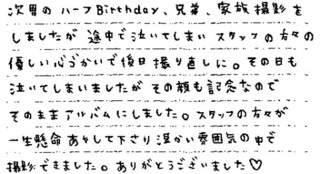 次男の ハーフBirthday、兄弟、家族撮影を
しましたが 途中で泣いてしまい スタッフの方々の
優しい心づかいで後日 撮り直しに。その日も
泣いてしまいましたが その顔も記念なので
そのままアルバムにしました。スタッフの方々が
一生懸命あやして下さり温かい雰囲気の中で
撮影できました。ありがとうございました♡